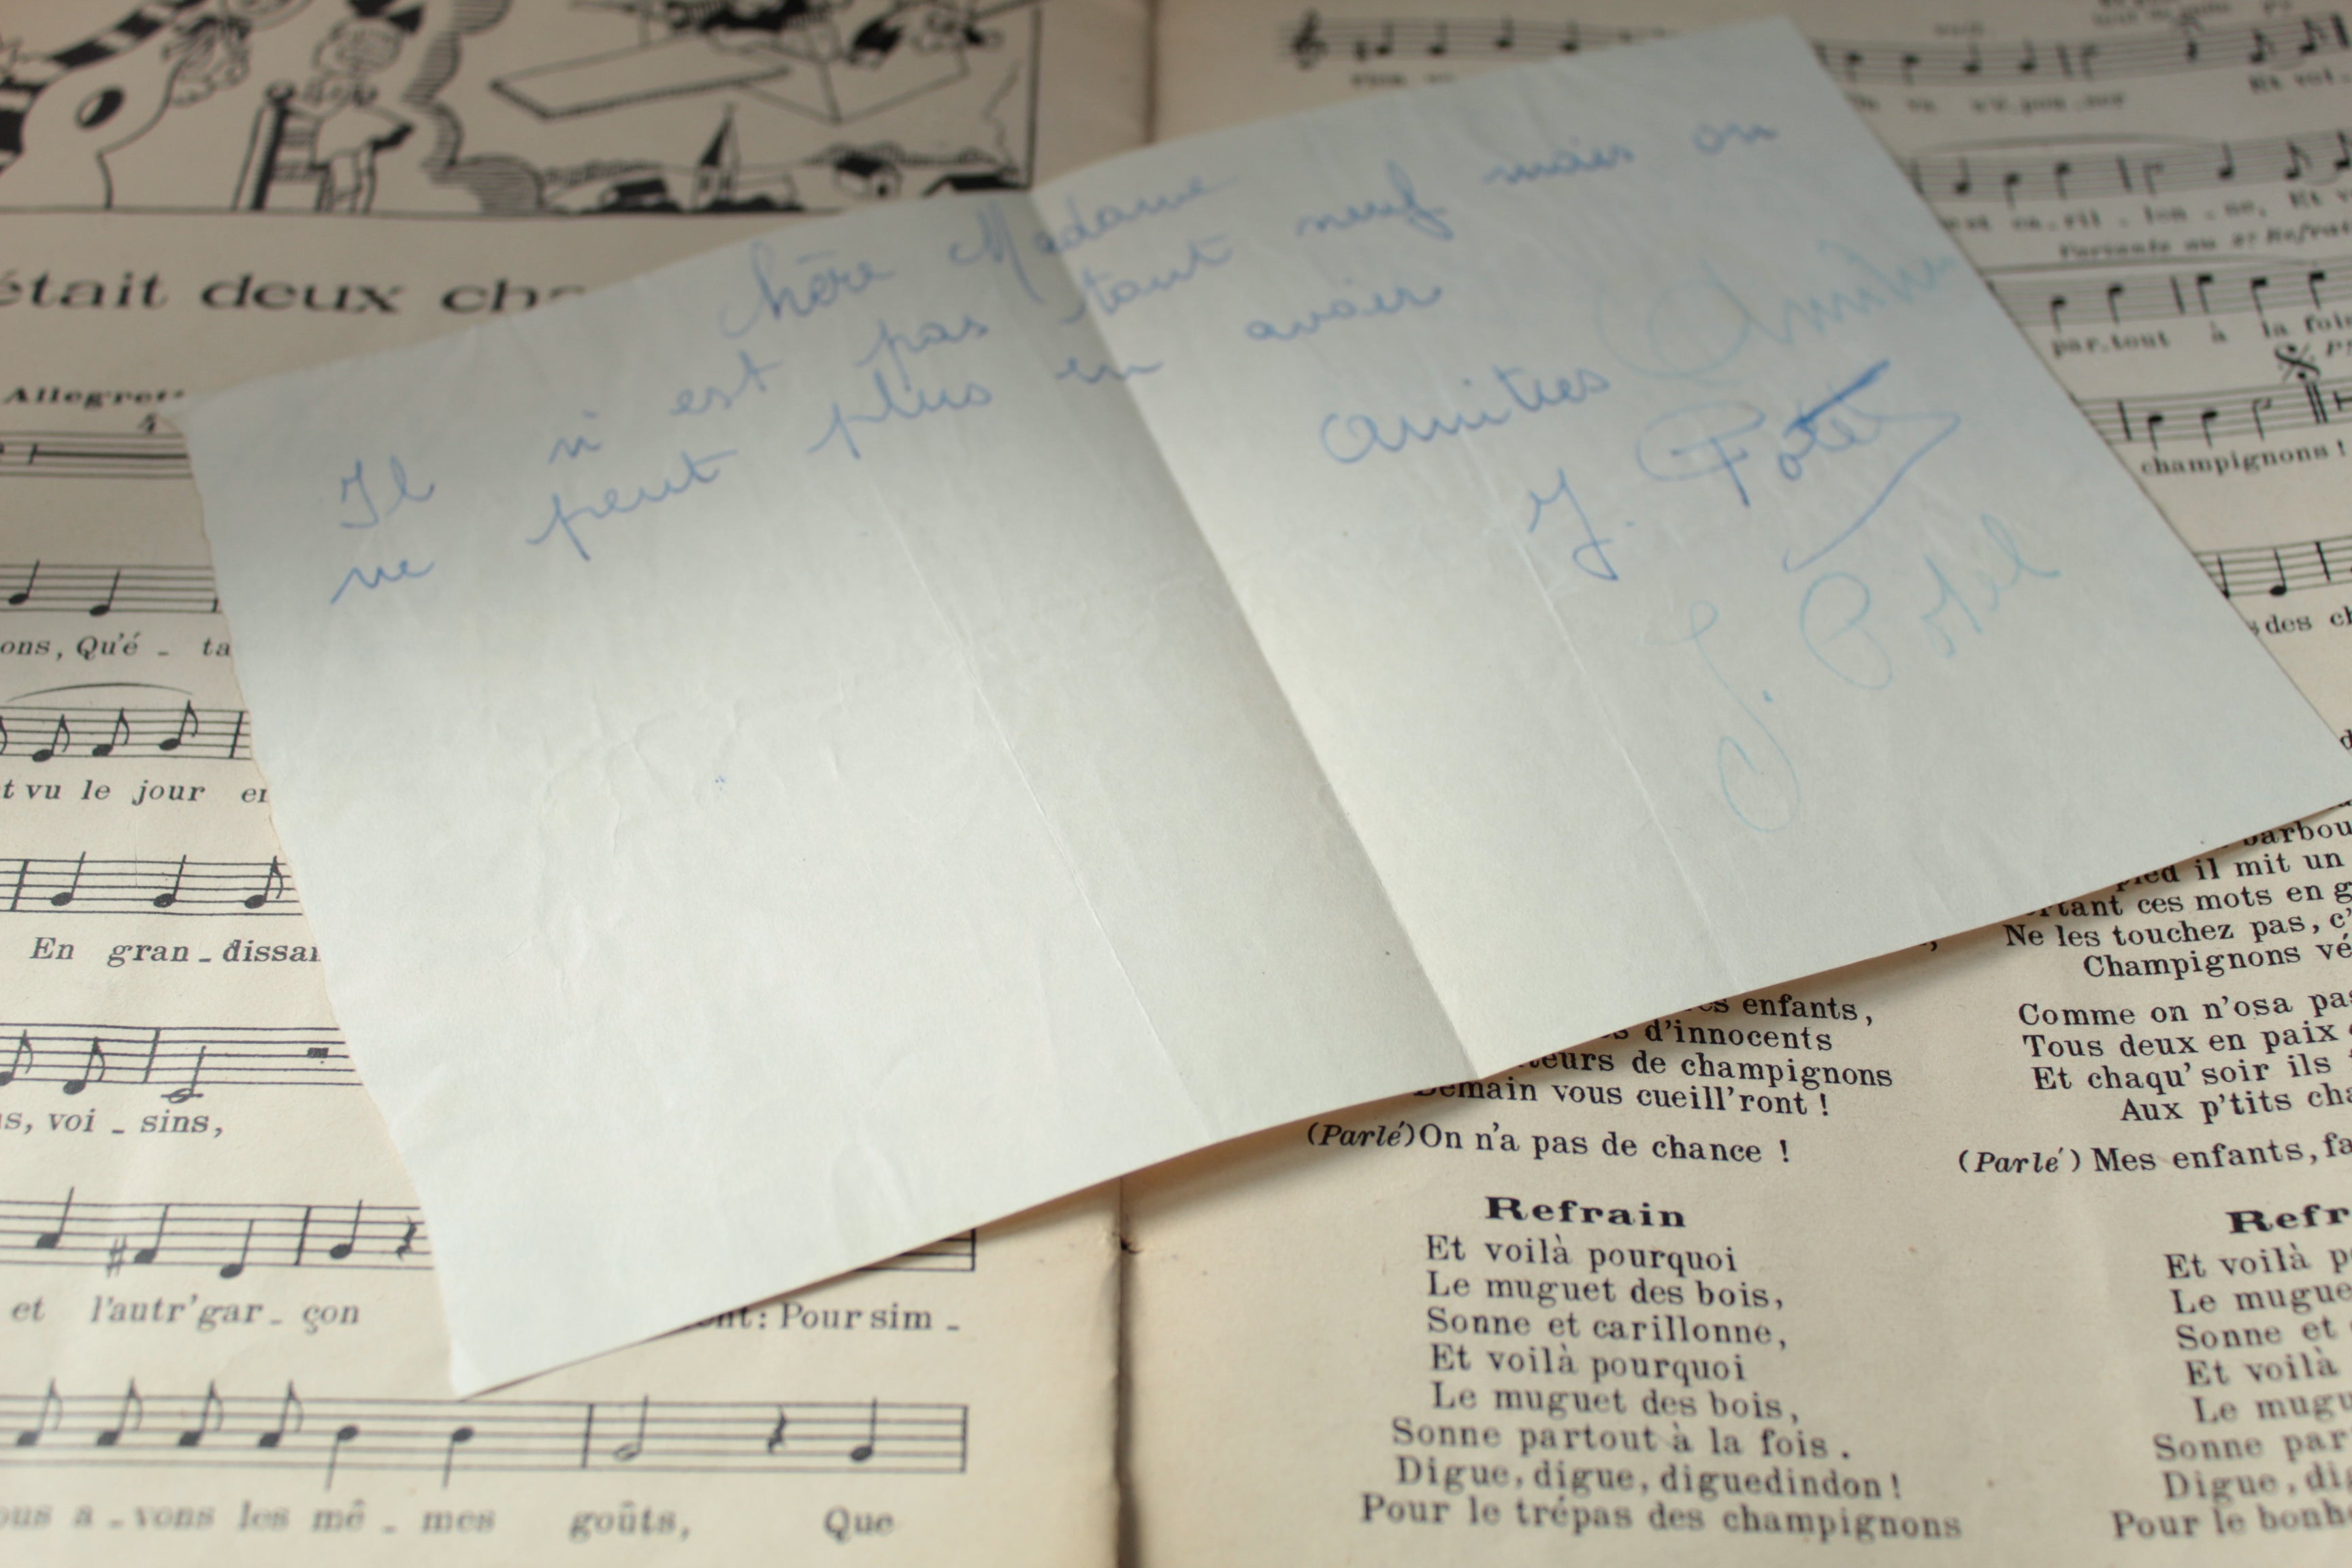 était deux cha
Allegrett
ons, Qu'é - ta
t vu le jour en
En gran - dissan
s, voi - sins,
et l'autr' gar - çon
nt: Pour sim -
ous a - vons les mê - mes goûts, Que
chère Madame
Il n'est pas tout neuf mais on
ne peut plus en avoir
Amitiés
Amitiés
J. Potel
J. Potel
Et vol
ca - ril - lon - ne, Et v
Variante au 2e Refrain
par - tout à la fois
champignons !
s des ch
barbou
pied il mit un
ortant ces mots en g
Ne les touchez pas, c'
Champignons vé
Comme on n'osa pas
Tous deux en paix
Et chaqu' soir ils
Aux p'tits cha
(Parlé) Mes enfants, fa
Refr
Et voilà p
Le mugue
Sonne et
Et voilà
Le mugu
Sonne par
Digue, dig
Pour le bonh
es enfants,
s d'innocents
teurs de champignons
Demain vous cueill'ront !
(Parlé) On n'a pas de chance !
Refrain
Et voilà pourquoi
Le muguet des bois,
Sonne et carillonne,
Et voilà pourquoi
Le muguet des bois,
Sonne partout à la fois.
Digue, digue, diguedindon !
Pour le trépas des champignons